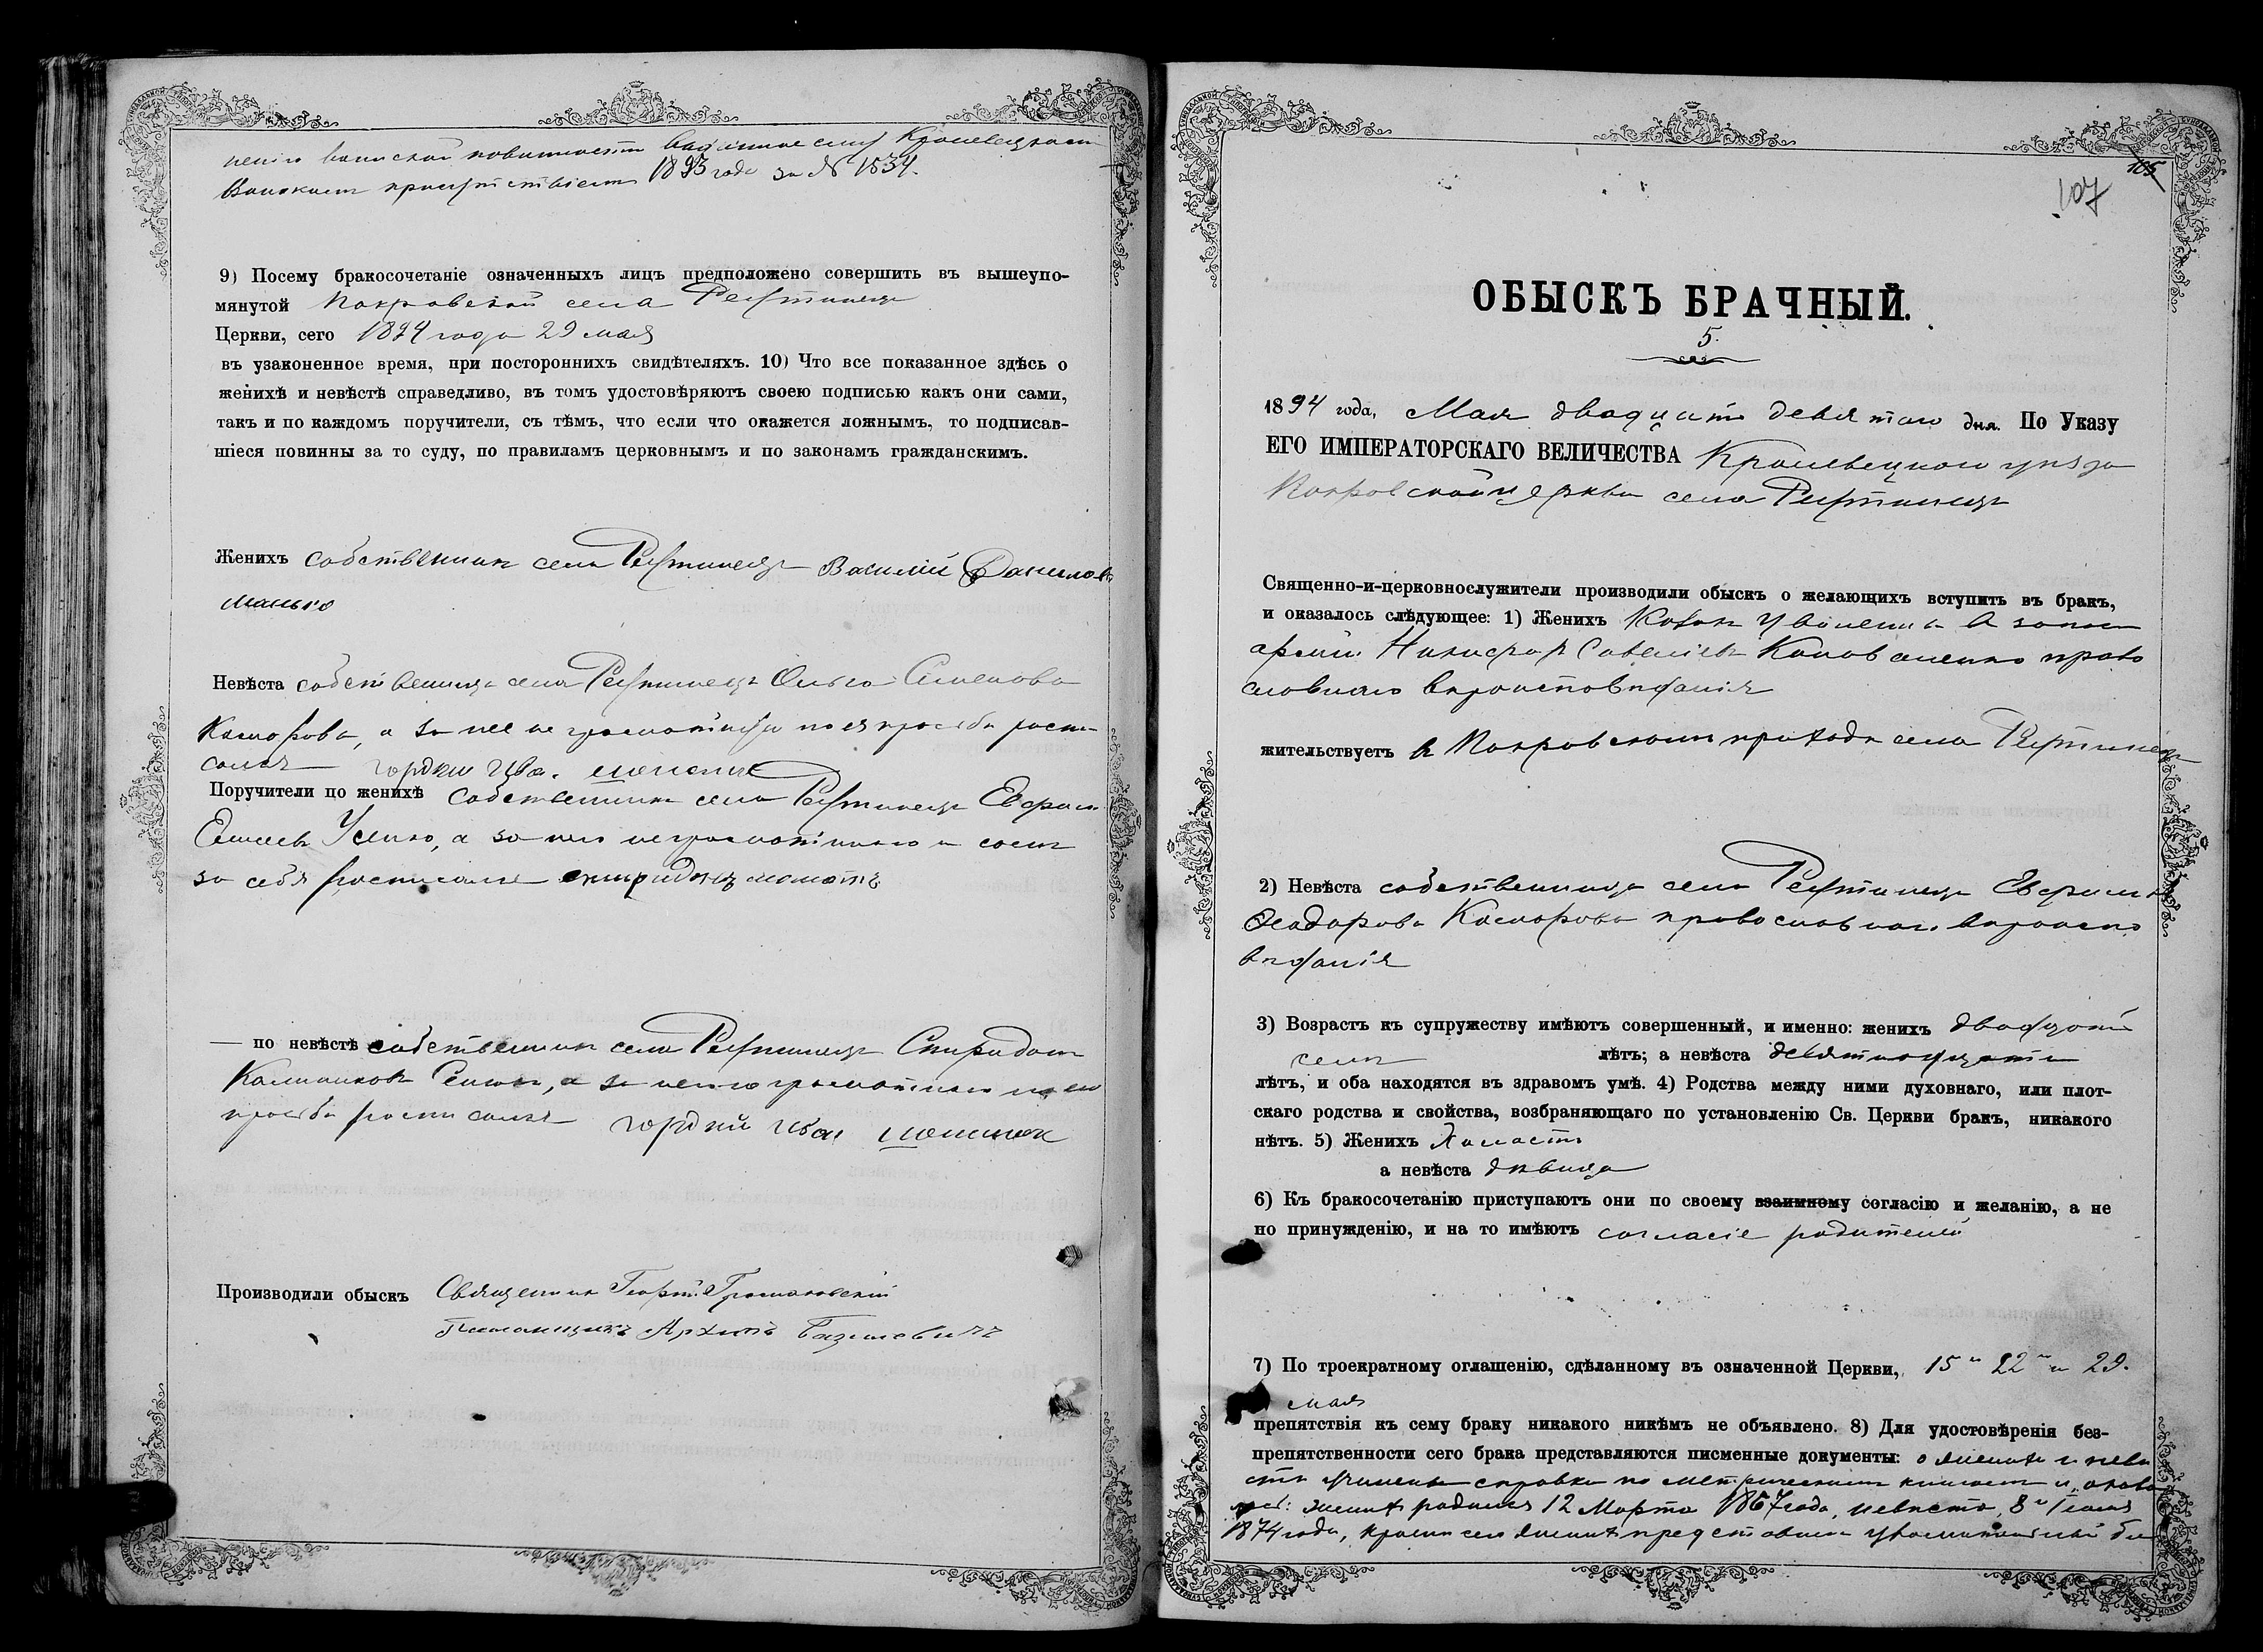 воинской повинности выданное ему Кролевецкимъ
Воинскимъ присутствіемъ 1893 года за № 1534.
9) Посему бракосочетаніе означенныхъ лицъ предположено совершить въ вышеупо-
мянутой Покровской села Реутинецъ
Церкви, сего 1894 года 29 мая
въ узаконенное время, при постороннихъ свидѣтеляхъ. 10) Что все показанное здѣсь о
женихѣ и невѣстѣ справедливо, въ томъ удостовѣряютъ своею подписью какъ они сами,
такъ и по каждомъ поручители, съ тѣмъ, что если что окажется ложнымъ, то подписав-
шіеся повинны за то суду, по правиламъ церковнымъ и по законамъ гражданскимъ.
Женихъ собственникъ села Реутинецъ Василій Даниловъ
Манько
Невѣста собственница села Реутинецъ Ольга Семенова
Коморова, а за нее неграмотную по ея прозьбѣ роспи-
сался гордѣй
Поручители по женихѣ собственникъ села Реутинецъ
Усенко, а за него неграмотнаго и самъ
за себя росписался спиридонъ
— по невѣстѣ собственникъ села Реутинецъ Спиридонъ
а за него неграмотнаго по его
прозьбѣ росписался гордѣй
Производили обыскъ Священникъ Георгій Громаковскій
Псаломщикъ Архипъ Базилевичъ
105
107
ОБЫСКЪ БРАЧНЫЙ.
5.
1894 года, Мая двадцать девятаго дня. По Указу
ЕГО ИМПЕРАТОРСКАГО ВЕЛИЧЕСТВА Кролевецкаго уѣзда
Покровской церкви села Реутинецъ
Священно-и-церковнослужители производили обыскъ о желающихъ вступить въ бракъ,
и оказалось слѣдующее: 1) Женихъ Козакъ уволенный в запасъ
арміи Никифоръ Савельевъ Коноваленко право
славнаго вѣроисповѣданія
жительствуетъ в Покровскомъ приходѣ села Реутинецъ
2) Невѣста собственница села Реутинецъ Евфимія
Ѳеодорова Коморова православнаго вѣроиспо
вѣданія
3) Возрастъ къ супружеству имѣютъ совершенный, и именно: женихъ двадцати
семи лѣтъ; а невѣста девятнадцати
лѣтъ, и оба находятся въ здравомъ умѣ. 4) Родства между ними духовнаго, или плот-
скаго родства и свойства, возбраняющаго по установленію Св. Церкви бракъ, никакого
нѣтъ. 5) Женихъ Холостъ
а невѣста дѣвица
6) Къ бракосочетанію приступаютъ они по своему взаимному согласію и желанію, а не
по принужденію, и на то имѣютъ согласіе родителей
7) По троекратному оглашенію, сдѣланному въ означенной Церкви, 15го 22го и 29.
мая
препятствія къ сему браку никакого никѣмъ не объявлено. 8) Для удостовѣренія без-
препятственности сего брака представляются писменные документы: о женихѣ и невѣ
стѣ учинена справка по метрическимъ книгамъ и оказа
лось: женихъ родился 12 Марта 1867 года, невѣста 8го Іюля
1874 года, кромѣ сего женихъ представилъ увольнительный би